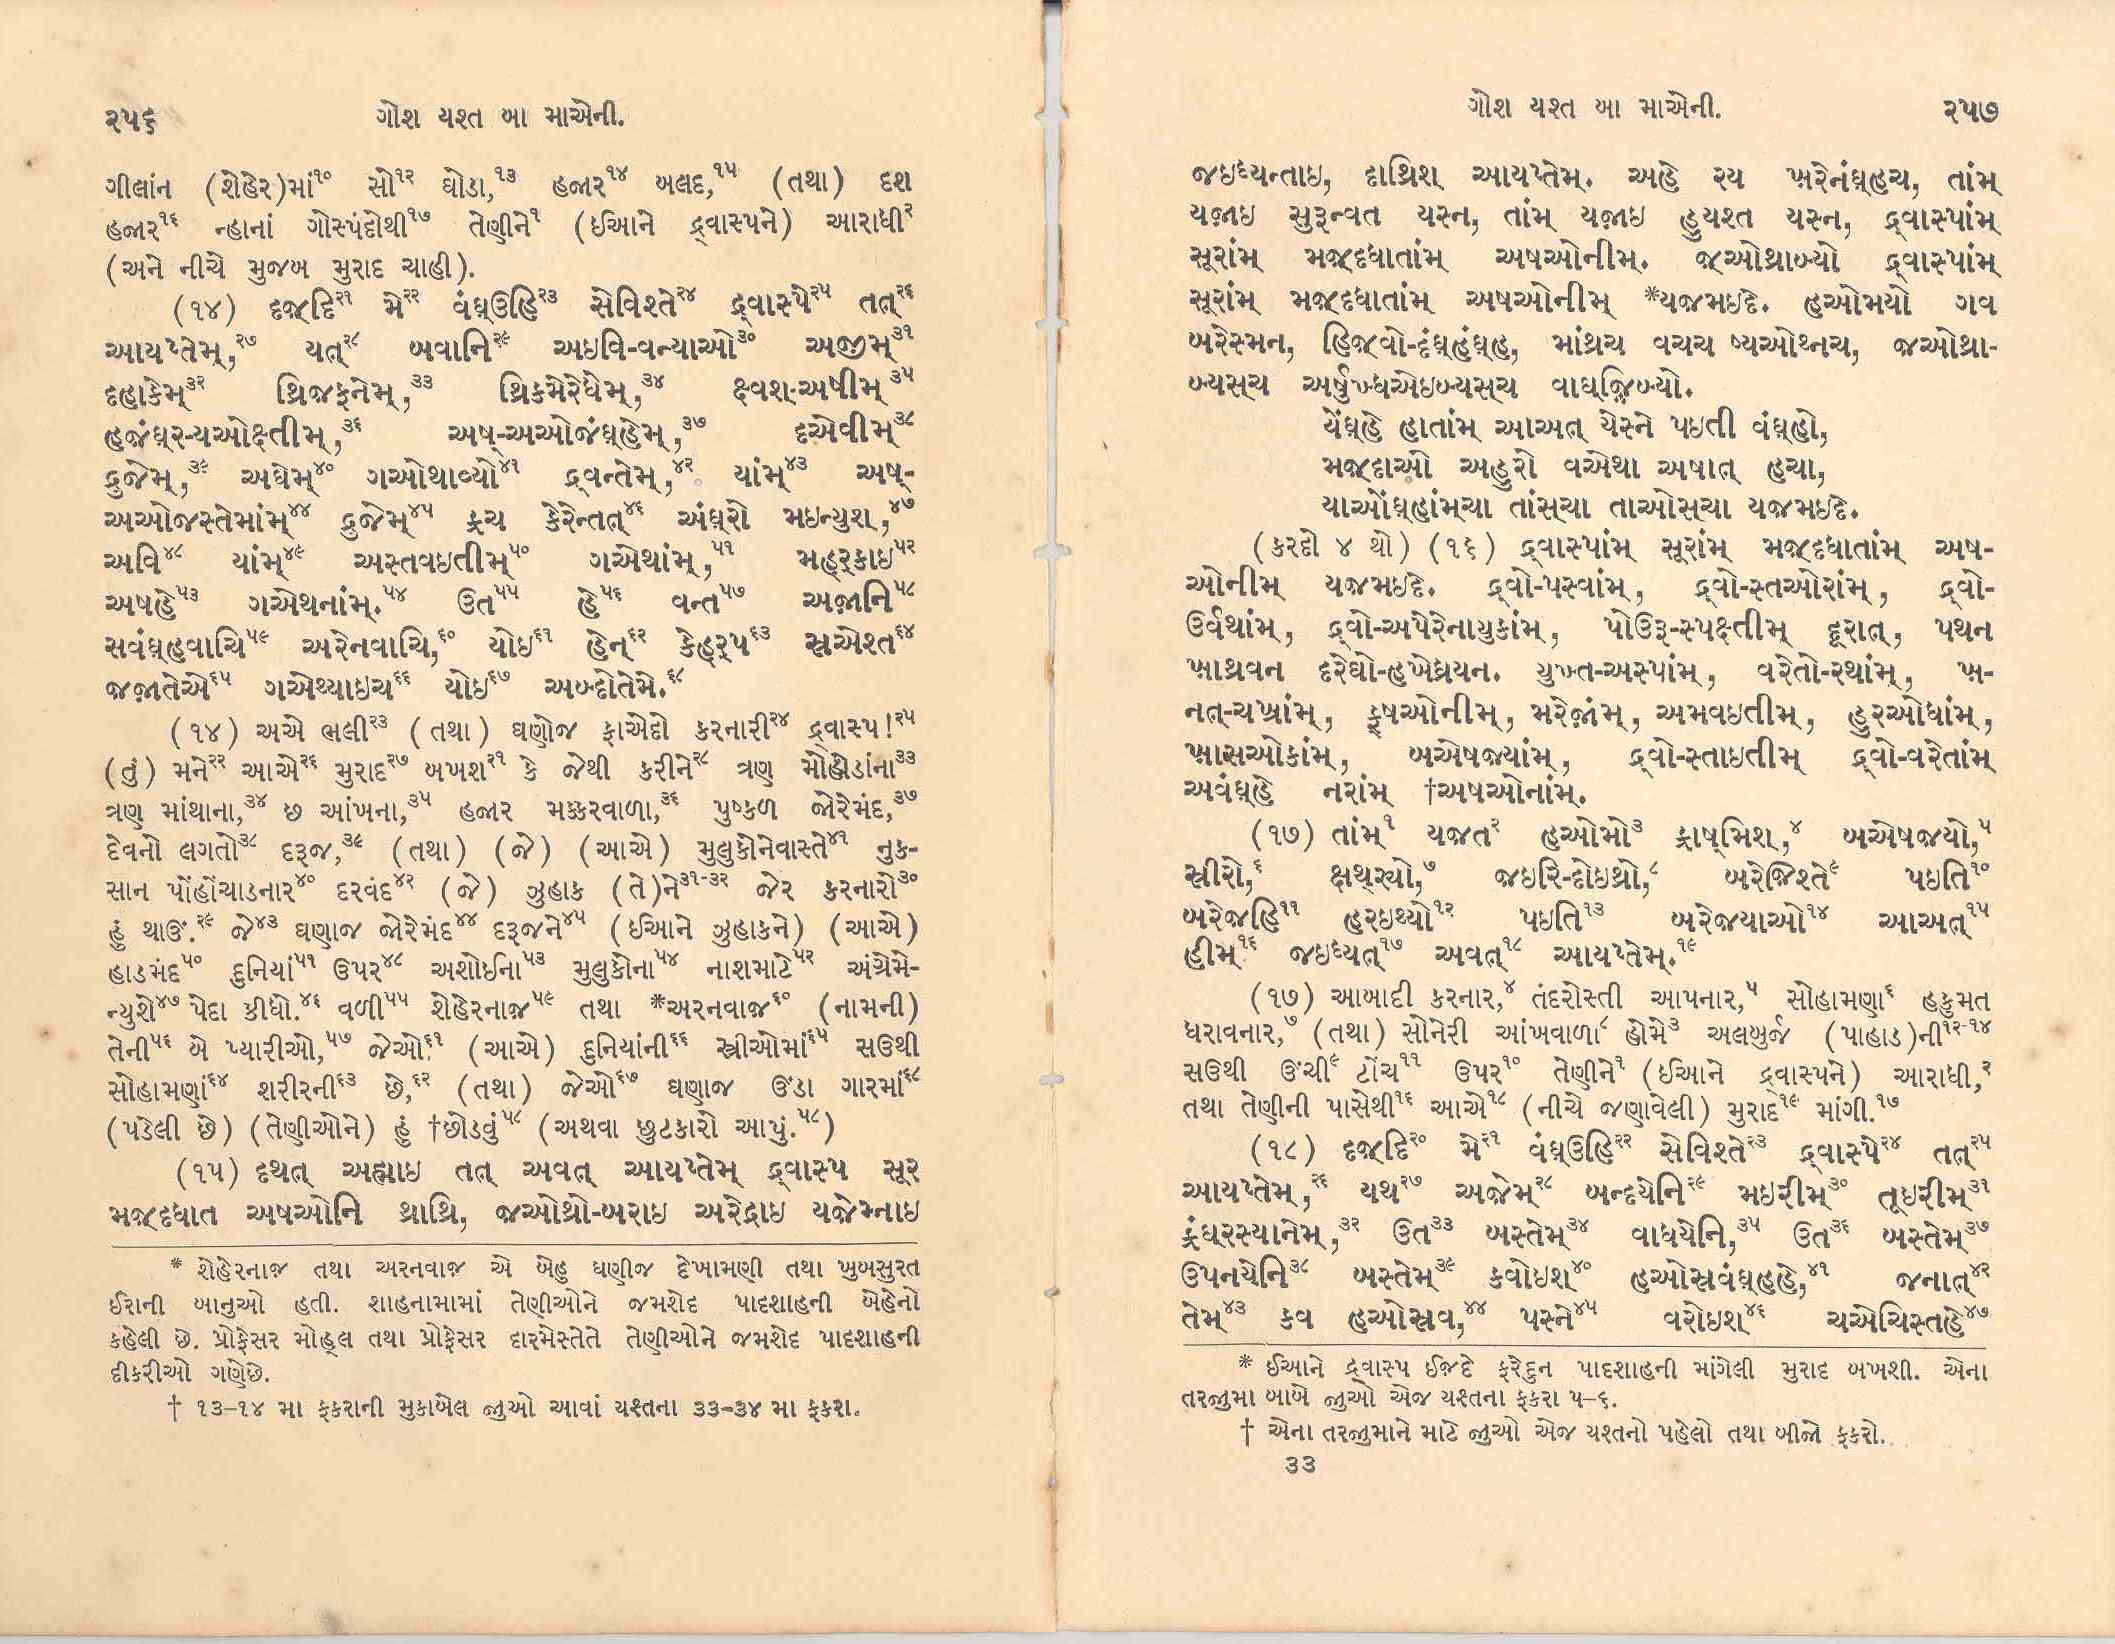 ૨૫૬ ગોશ યશ્ત બા માએની.
ગીલાંન (શેહેર)માં૧૦ સો૧૨ ઘોડા,૧૩ હજાર૧૪ બલદ,૧૫ (તથા) દશ
હજાર૧૬ ન્હાનાં ગોસ્પંદોથી૧૭ તેણીને૧ (ઈઆને દ્ર્વાસ્પને) આરાધી૨
(અને નીચે મુજબ મુરાદ ચાહી).
(૧૪) દજ઼્દિ૨૧ મે૨૨ વંઘ્ઉહિ૨૩ સેવિશ્તે૨૪ દ્ર્વાસ્પે૨૫ તત્૨૬
આયપ્તેમ્,૨૭ યત્૨૮ બવાનિ૨૯ અઇવિ-વન્યાઓ૩૦ અજ઼ીમ્૩૧
દહાકેમ્૩૨ થ્રિજ઼ફનેમ્,૩૩ થ્રિકમેરેધેમ્,૩૪ ક્ષ્વશ્-અષીમ્૩૫
હજ઼ંઘ્ર-યઓક્ષ્તીમ્,૩૬ અષ્-અઓજંઘ્હેમ્,૩૭ દએવીમ્૩૮
દ્રુજેમ્,૩૯ અઘેમ્૪૦ ગઓથાવ્યો૪૧ દ્ર્વન્તેમ્,૪૨ યાંમ્૪૩ અષ્-
અઓજસ્તેમાંમ્૪૪ દ્રુજેમ્૪૫ ફ્રચ કેરેન્તત્૪૬ અંઘ્રો મઇન્યુશ,૪૭
અવિ૪૮ યાંમ્૪૯ અસ્તવઇતીમ્૫૦ ગએથાંમ્,૫૧ મહર્કાઇ૫૨
અષહે૫૩ ગએથનાંમ્.૫૪ ઉત૫૫ હે૫૬ વન્ત૫૭ અજ઼ાનિ૫૮
સવંઘ્હવાચિ૫૯ અરેનવાચિ,૬૦ યોઇ૬૧ હેન્૬૨ કેહર્પ૬૩ સ્રએશ્ત૬૪
જ઼જ઼ાતેએ૬૫ ગએથ્યાઇચ૬૬ યોઇ૬૭ અબ્દોતેમે.૬૮
(૧૪) અએ ભલી૨૩ (તથા) ઘણોજ ફાએદો કરનારી૨૪ દ્ર્વાસ્પ!૨૫
(તું) મને૨૨ આએ૨૬ મુરાદ૨૭ બખશ૨૧ કે જેથી કરીને૨૮ ત્રણ મોહોડાંના૩૩
ત્રણ માંથાના,૩૪ છ આંખના,૩૫ હજાર મક્કરવાળા,૩૬ પુષ્કળ જોરેમંદ,૩૭
દેવનો લગતો૩૮ દરૂજ,૩૯ (તથા) (જે) (આએ) મુલુકોનેવાસ્તે૪૧ નુક-
સાન પોંહોંચાડનાર૪૦ દરવંદ૪૨ (જે) ઝુહાક (તે)ને૩૧-૩૨ જેર કરનારો૩૦
હું થાઊં.૨૯ જે૪૩ ઘણાજ જોરેમંદ૪૪ દરૂજને૪૫ (ઈઆને ઝુહાકને) (આએ)
હાડમંદ૫૦ દુનિયાં૫૧ ઉપર૪૮ અશોઈના૫૩ મુલુકોના૫૪ નાશમાટે૫૨ અંગ્રેમે-
ન્યુશે૪૭ પેદા કીધો.૪૬ વળી૫૫ શેહેરનાજ઼૫૯ તથા *અરનવાજ઼૬૦ (નામની)
તેની૫૬ બે પ્યારીઓ,૫૭ જેઓ૬૧ (આએ) દુનિયાંની૬૬ સ્ત્રીઓમાં૬૫ સઉથી
સોહામણાં૬૪ શરીરની૬૩ છે,૬૨ (તથા) જેઓ૬૭ ઘણાજ ઊંડા ગારમાં૬૮
(પડેલી છે) (તેણીઓને) હું †છોડવું૫૮ (અથવા છુટકારો આપું.૫૮)
(૧૫) દથત્ અહ્માઇ તત્ અવત્ આયપ્તેમ્ દ્ર્વાસ્પ સૂર
મજ઼્દધાત અષઓનિ થ્રાથ્રિ, જ઼ઓથ્રો-બરાઇ અરેદ્રાઇ યજ઼ેમ્નાઇ
* શેહેરનાજ઼ તથા અરનવાજ઼ એ બેહુ ઘણીજ દેખામણી તથા ખુબસુરત
ઈરાની બાનુઓ હતી. શાહનામામાં તેણીઓને જમશેદ પાદશાહની બેહેનો
કહેલી છે. પ્રોફેસર મોહ્લ તથા પ્રોફેસર દારમેસ્તેતે તેણીઓને જમશેદ પાદશાહની
દીકરીઓ ગણેછે.
† ૧૩-૧૪ મા ફકરાની મુકાબેલ જુઓ આવાં યશ્તના ૩૩-૩૪ મા ફકરા.
ગોશ યશ્ત બા માએની. ૨૫૭
જઇધ્યન્તાઇ, દાથ્રિશ્ આયપ્તેમ્. અહે રય ખ઼રેનંઘ્હચ, તાંમ્
યજ઼ાઇ સુરૂન્વત યસ્ન, તાંમ્ યજ઼ાઇ હુયશ્ત યસ્ન, દ્ર્વાસ્પાંમ્
સૂરાંમ્ મજ઼્દધાતાંમ્ અષઓનીમ્. જ઼ઓથ્રાબ્યો દ્ર્વાસ્પાંમ્
સૂરાંમ્ મજ઼્દધાતાંમ્ અષઓનીમ્ *યજ઼મઇદે. હઓમયો ગવ
બરેસ્મન, હિજ઼્વો-દંઘ્હંઘ્હ, માંથ્રચ વચચ ષ્યઓથ્નચ, જ઼ઓથ્રા-
બ્યસ્ચ અર્ષુખ્ધએઇબ્યસ્ચ વાઘ્જ઼િબ્યો.
યેંઘ્હે હાતાંમ્ આઅત્ યેસ્ને પઇતી વંઘ્હો,
મજ઼્દાઓ અહુરો વએથા અષાત્ હચા,
યાઓંઘ્હાંમ્ચા તાંસ્ચા તાઓસ્ચા યજ઼મઇદે.
(કરદો ૪ થો) (૧૬) દ્ર્વાસ્પાંમ્ સૂરાંમ્ મજ઼્દધાતાંમ્ અષ-
ઓનીમ્ યજ઼મઇદે. દ્ર્વો-પસ્વાંમ્, દ્ર્વો-સ્તઓરાંમ્, દ્ર્વો-
ઉર્વથાંમ્, દ્ર્વો-અપેરેનાયુકાંમ્, પોઉરૂ-સ્પક્ષ્તીમ્ દૂરાત્, પથન
ખ઼ાથ્રવન દરેઘો-હખેધ્રયન. યુખ્ત-અસ્પાંમ્, વરેતો-રથાંમ્, ખ઼-
નત્-ચખ્રાંમ્, ફ્ષઓનીમ્, મરેજ઼ાંમ્, અમવઇતીમ્, હુરઓધાંમ્,
ખ઼ાસઓકાંમ્, બએષજ઼્યાંમ્, દ્ર્વો-સ્તાઇતીમ્ દ્ર્વો-વરેતાંમ્
અવંઘ્હે નરાંમ્ †અષઓનાંમ્.
(૧૭) તાંમ્૧ યજ઼ત૨ હઓમો૩ ફ્રાષ્મિશ,૪ બએષજ઼્યો,૫
સ્રીરો,૬ ક્ષથ્ર્યો,૭ જ઼ઇરિ-દોઇથ્રો,૮ બરેજ઼િશ્તે૯ પઇતિ૧૦
બરેજ઼હિ૧૧ હરઇથ્યો૧૨ પઇતિ૧૩ બરેજ઼યાઓ૧૪ આઅત્૧૫
હીમ્૧૬ જઇધ્યત્૧૭ અવત્૧૮ આયપ્તેમ્.૧૯
(૧૭) આબાદી કરનાર,૪ તંદરોસ્તી આપનાર,૫ સોહામણા૬ હકુમત
ધરાવનાર,૭ (તથા) સોનેરી આંખવાળા૮ હોમે૩ અલબુર્જ (પાહાડ)ની૧૨-૧૪
સઉથી ઊંચી૯ ટોંચ૧૧ ઉપર૧૦ તેણીને૧ (ઈઆને દ્ર્વાસ્પને) આરાધી,૨
તથા તેણીની પાસેથી૧૬ આએ૧૮ (નીચે જણાવેલી) મુરાદ૧૯ માંગી.૧૭
(૧૮) દજ઼્દિ૨૦ મે૨૧ વંઘ્ઉહિ૨૨ સેવિશ્તે૨૩ દ્ર્વાસ્પે૨૪ તત્૨૫
આયપ્તેમ્,૨૬ યથ૨૭ અજ઼ેમ્૨૮ બન્દયેનિ૨૯ મઇરીમ્૩૦ તૂઇરીમ્૩૧
ફ્રંઘ્રસ્યાનેમ્,૩૨ ઉત૩૩ બસ્તેમ્૩૪ વાધયેનિ,૩૫ ઉત૩૬ બસ્તેમ્૩૭
ઉપનયેનિ૩૮ બસ્તેમ્૩૯ કવોઇશ્૪૦ હઓસ્રવંઘ્હહે,૪૧ જનાત્૪૨
તેમ્૪૩ કવ હઓસ્રવ,૪૪ પસ્ને૪૫ વરોઇશ્૪૬ ચએચિસ્તહે૪૭
* ઈઆને દ્ર્વાસ્પ ઈજ઼દે ફરેદુન પાદશાહની માંગેલી મુરાદ બખશી. એના
તરજુમા બાબે જુઓ એજ યશ્તના ફકરા ૫-૬.
† એના તરજુમાને માટે જુઓ એજ યશ્તનો પહેલો તથા બીજો ફકરો.
૩૩